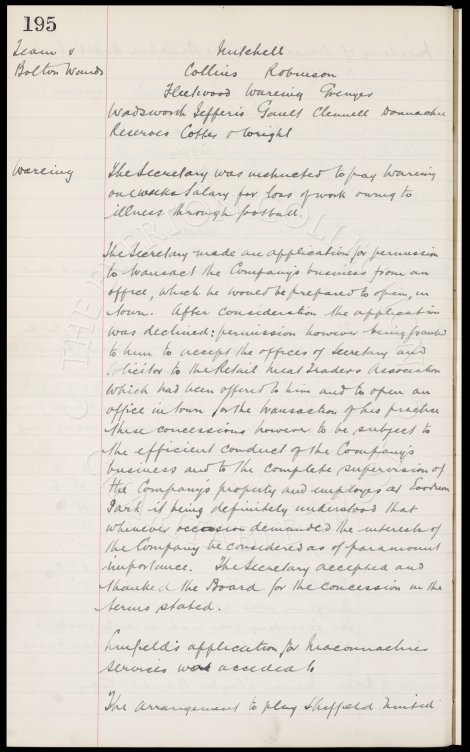 195
Team v Mitchell
Bolton Wands Collins Robinson
Fleetwood Wareing Grenyer
Wadsworth Jefferis Gault Clennell Donnachie
Reserves Coffer & Wright
Wareing The Secretary was instructed to pay Wareing
one weeks Salary for loss of work owing to
illness through football.
The Secretary made an application for permission
to transact the Company's business from an
office, which he would be prepared to open, in
town. After consideration the application
was declined: permission however being granted
to him to accept the offices of Secretary and
Solicitor to the Retail Meat Traders Association
which had been offered to him and to open an
office in town for the transaction of his practice
these concessions however to be subject to
the efficient conduct of the Company's
business and to the complete supervision of
the Company's property and employes at Goodison
Park it being definitely understood that
whenever occasion demanded the interests of
the Company be considered as of paramount
importance. The Secretary accepted and
thanked the Board for the concession on the
terms stated.
Linfield's application for Maconnachies
services was acceded to
The arrangement to play Sheffield United